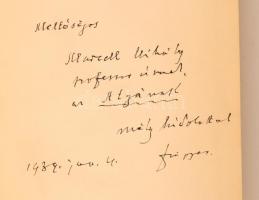 Méltóságos
Marcell Mihály
professor úrnak,
az Atyának
mély hódolattal
1939. jan. 4.